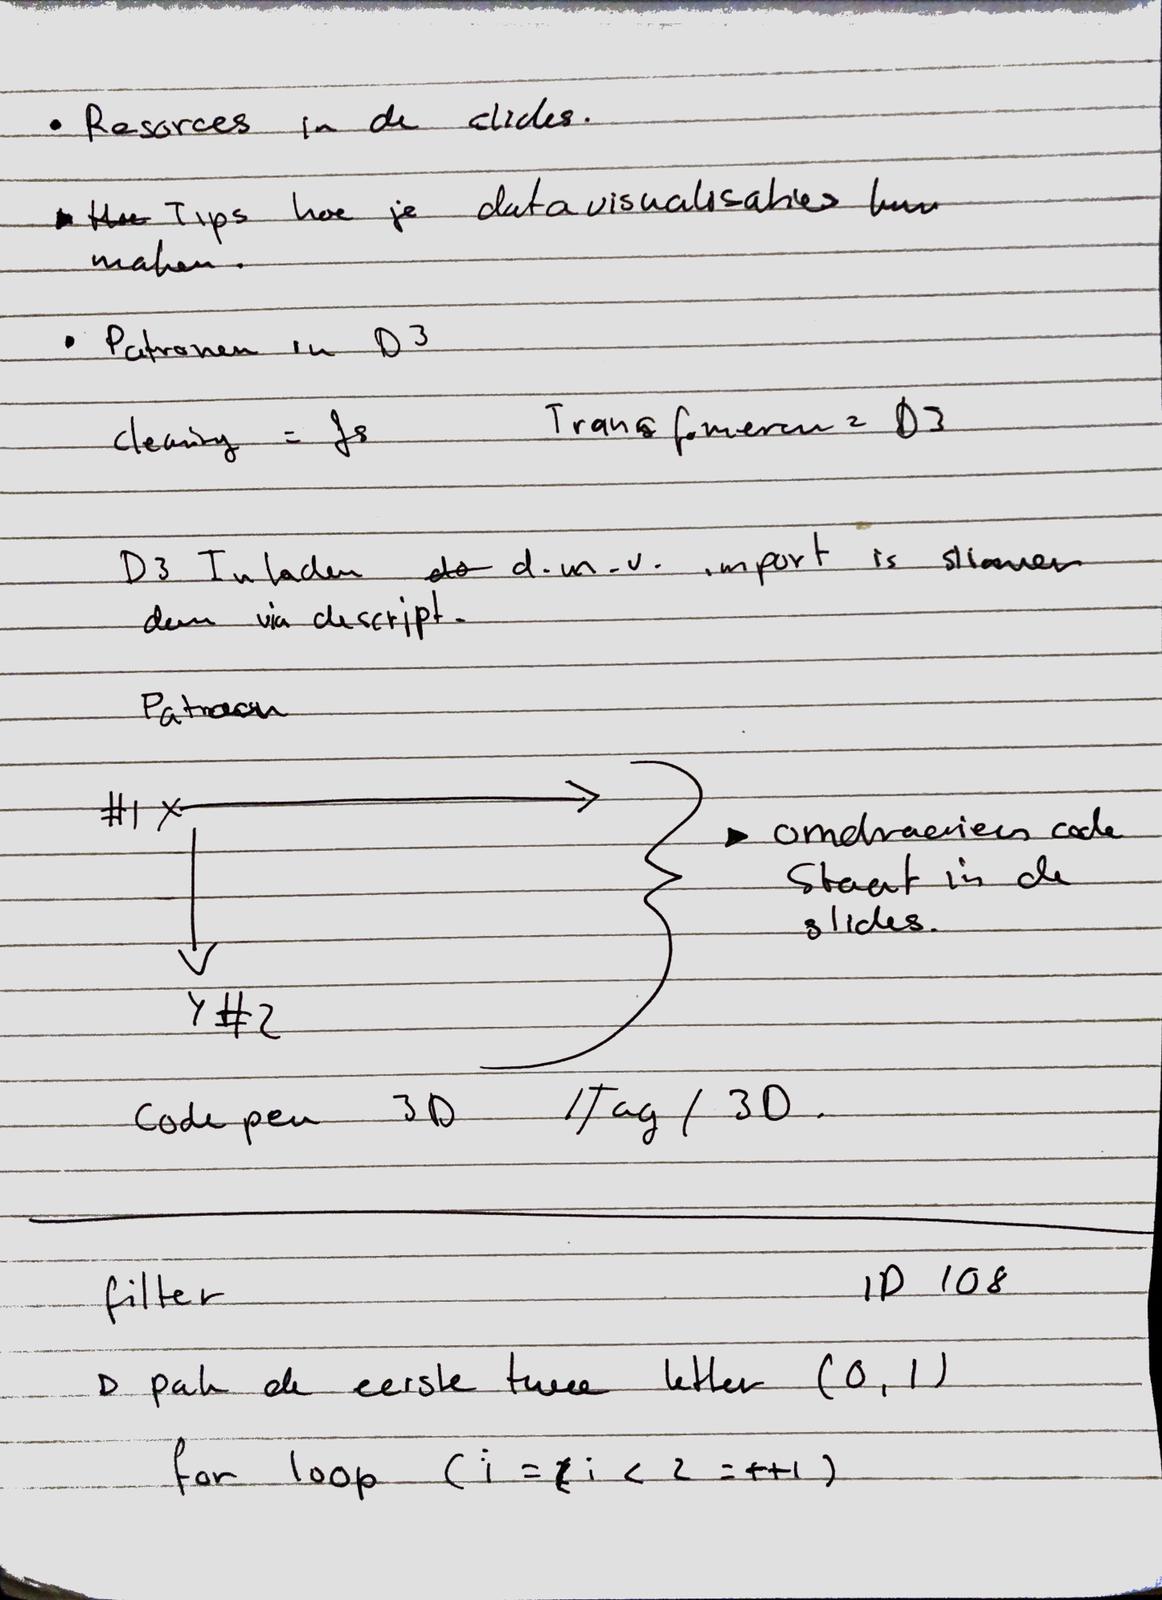 • Resorces in de slides.
Hoe Tips hoe je datavisualisaties kun
maken.
• Patronen in D3
cleaning = Js Transformeren = D3
D3 Inladen do d.m.v. import is slimmer
dan via descript.
Patroon
#1 X
omdraaiien code
Staat in de
slides.
Y #2
Codepen 3D /Tag/ 3D.
filter ID 108
pak de eerste twee letter (0,1)
for loop (i = i < 2 = ++1)